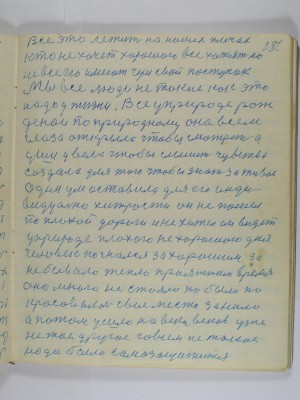 Все это лежит на наших плечах
Кто не хочет хорошого все хотят но
не все его имеют чем свой поступок
Мы все люди не такие как это
надо жизни. Все у природе рож
деной по природному она всем
глаза открыло чтобы смотреть а
уши дала чтобы слышит чувства
создала для того чтобы знать за живое
Один ум оставила для его инди
видуально хитрость он не пошел
по плохой дороги и не хотел он видеть
у природе плохого не хорошого дня
человек погнался за хорошим за
небывало тепло приятном время
оно много не стояло побыло по
красовалося свое место заняло
а потом ушло на веки веков уже
не такое другое совсем не такое
надо было самозащитится